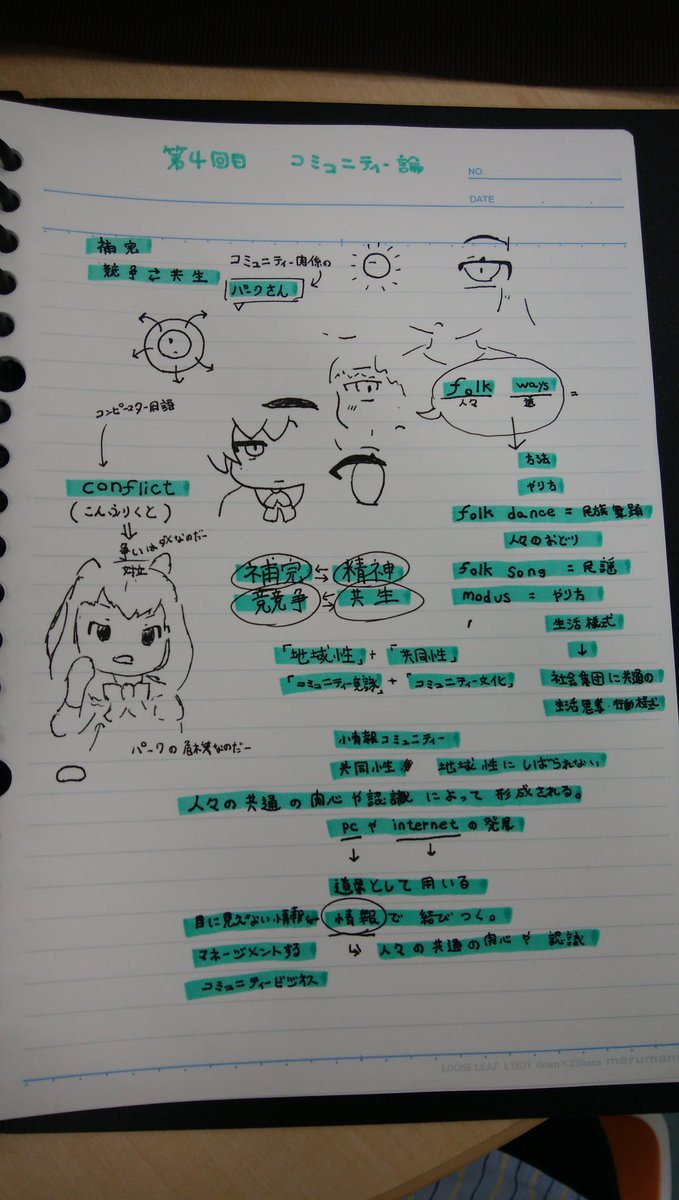 第4回目 コミュニティー論
NO.
DATE
補完
競争⇄共生
コミュニティー関係の
パークさん
folk ways =
人々 道
方法
やり方
folk dance = 民族舞踊
人々のおどり
folk song = 民謡
modus = やり方
生活様式
社会集団に共通の
生活思考・行動様式
conflict
(こんふりくと)
争いはダメなのだー
対立
パークの なのだー
補完 精神
競争 共生
「地域性」+「共同性」
「コミュニティー意識」+「コミュニティー文化」
情報コミュニティー
共同性 地域性にしばられない
人々の共通の関心や認識によって形成される。
pcやinternetの発展
道具として用いる
目に見えない情報 情報で結びつく。
マネージメントする 人々の共通の関心や認識
コミュニティービジネス
LOOSE LEAF L1301 6mm×28lines maruman